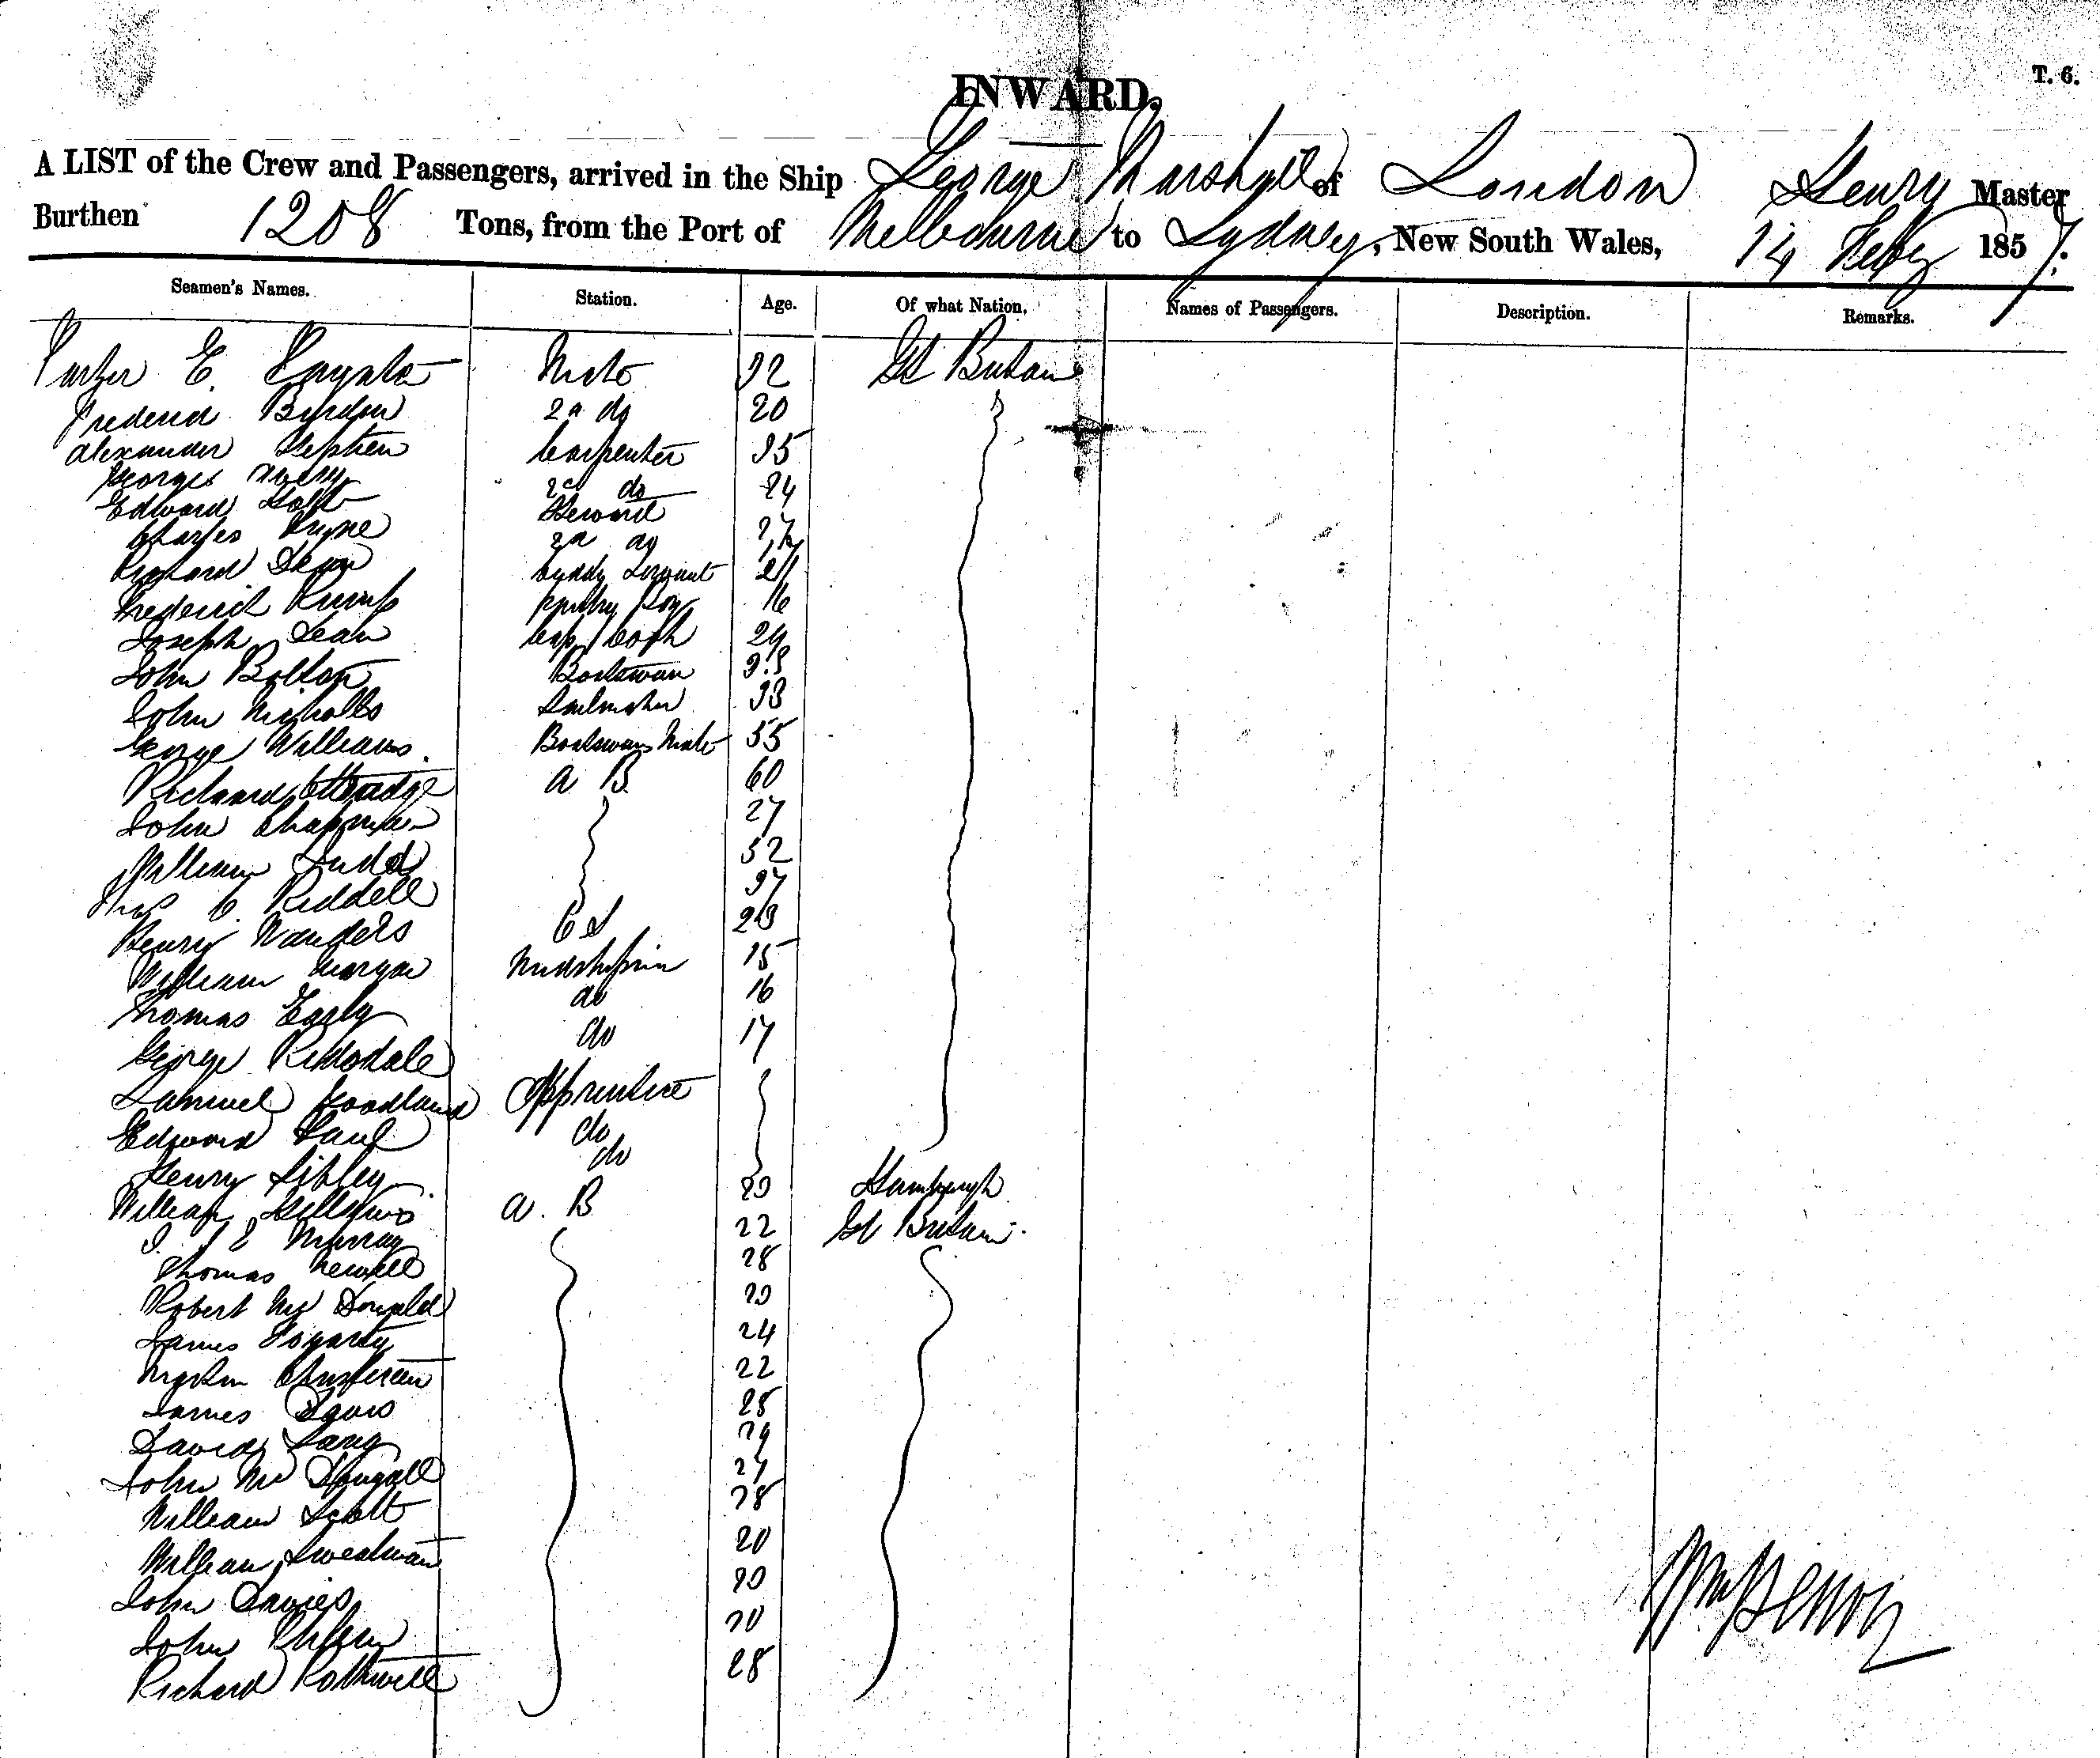 INWARD.
T. 6.
A LIST of the Crew and Passengers, arrived in the Ship George Marshall of London Henry Master
Burthen 1208 Tons, from the Port of Melbourne to Sydney, New South Wales, 14 Feby 1857.
Seamen's Names. Station. Age. Of what Nation. Names of Passengers. Description. Remarks.
E. Mate 32 Gt Britain
Frederick 2d do 20
Alexander Stephen Carpenter 35
George Avery 2d do 24
Edward Holt Steward
Charles 2d do
Richard Cuddy Servant 21
Frederick Rump Boy 16
Joseph Dean Cook 24
John Bolton Boatswain
John Nicholls Sailmaker 33
George Williams. Boatswains Mate 55
Richard A B 60
John Chapman 27
William Judd 52
C. Riddell 37
Henry Wanders O S 23
William Morgan Midshipman 15
Thomas Early do 16
George do 17
Samuel Woodland Apprentice
Edward do
Henry Sibley do
William A. B 20 Hamburgh
Murray 22 Gt Britain
Thomas Newell 28
Robert Mc Donald 20
James Fogarty 24
Martin Christian 22
James Davis 28
David Lang 24
John Mc Dougall 27
William Scott 28
William Sweatman 20
John Davies 20
John 20
Richard Rothwell 28